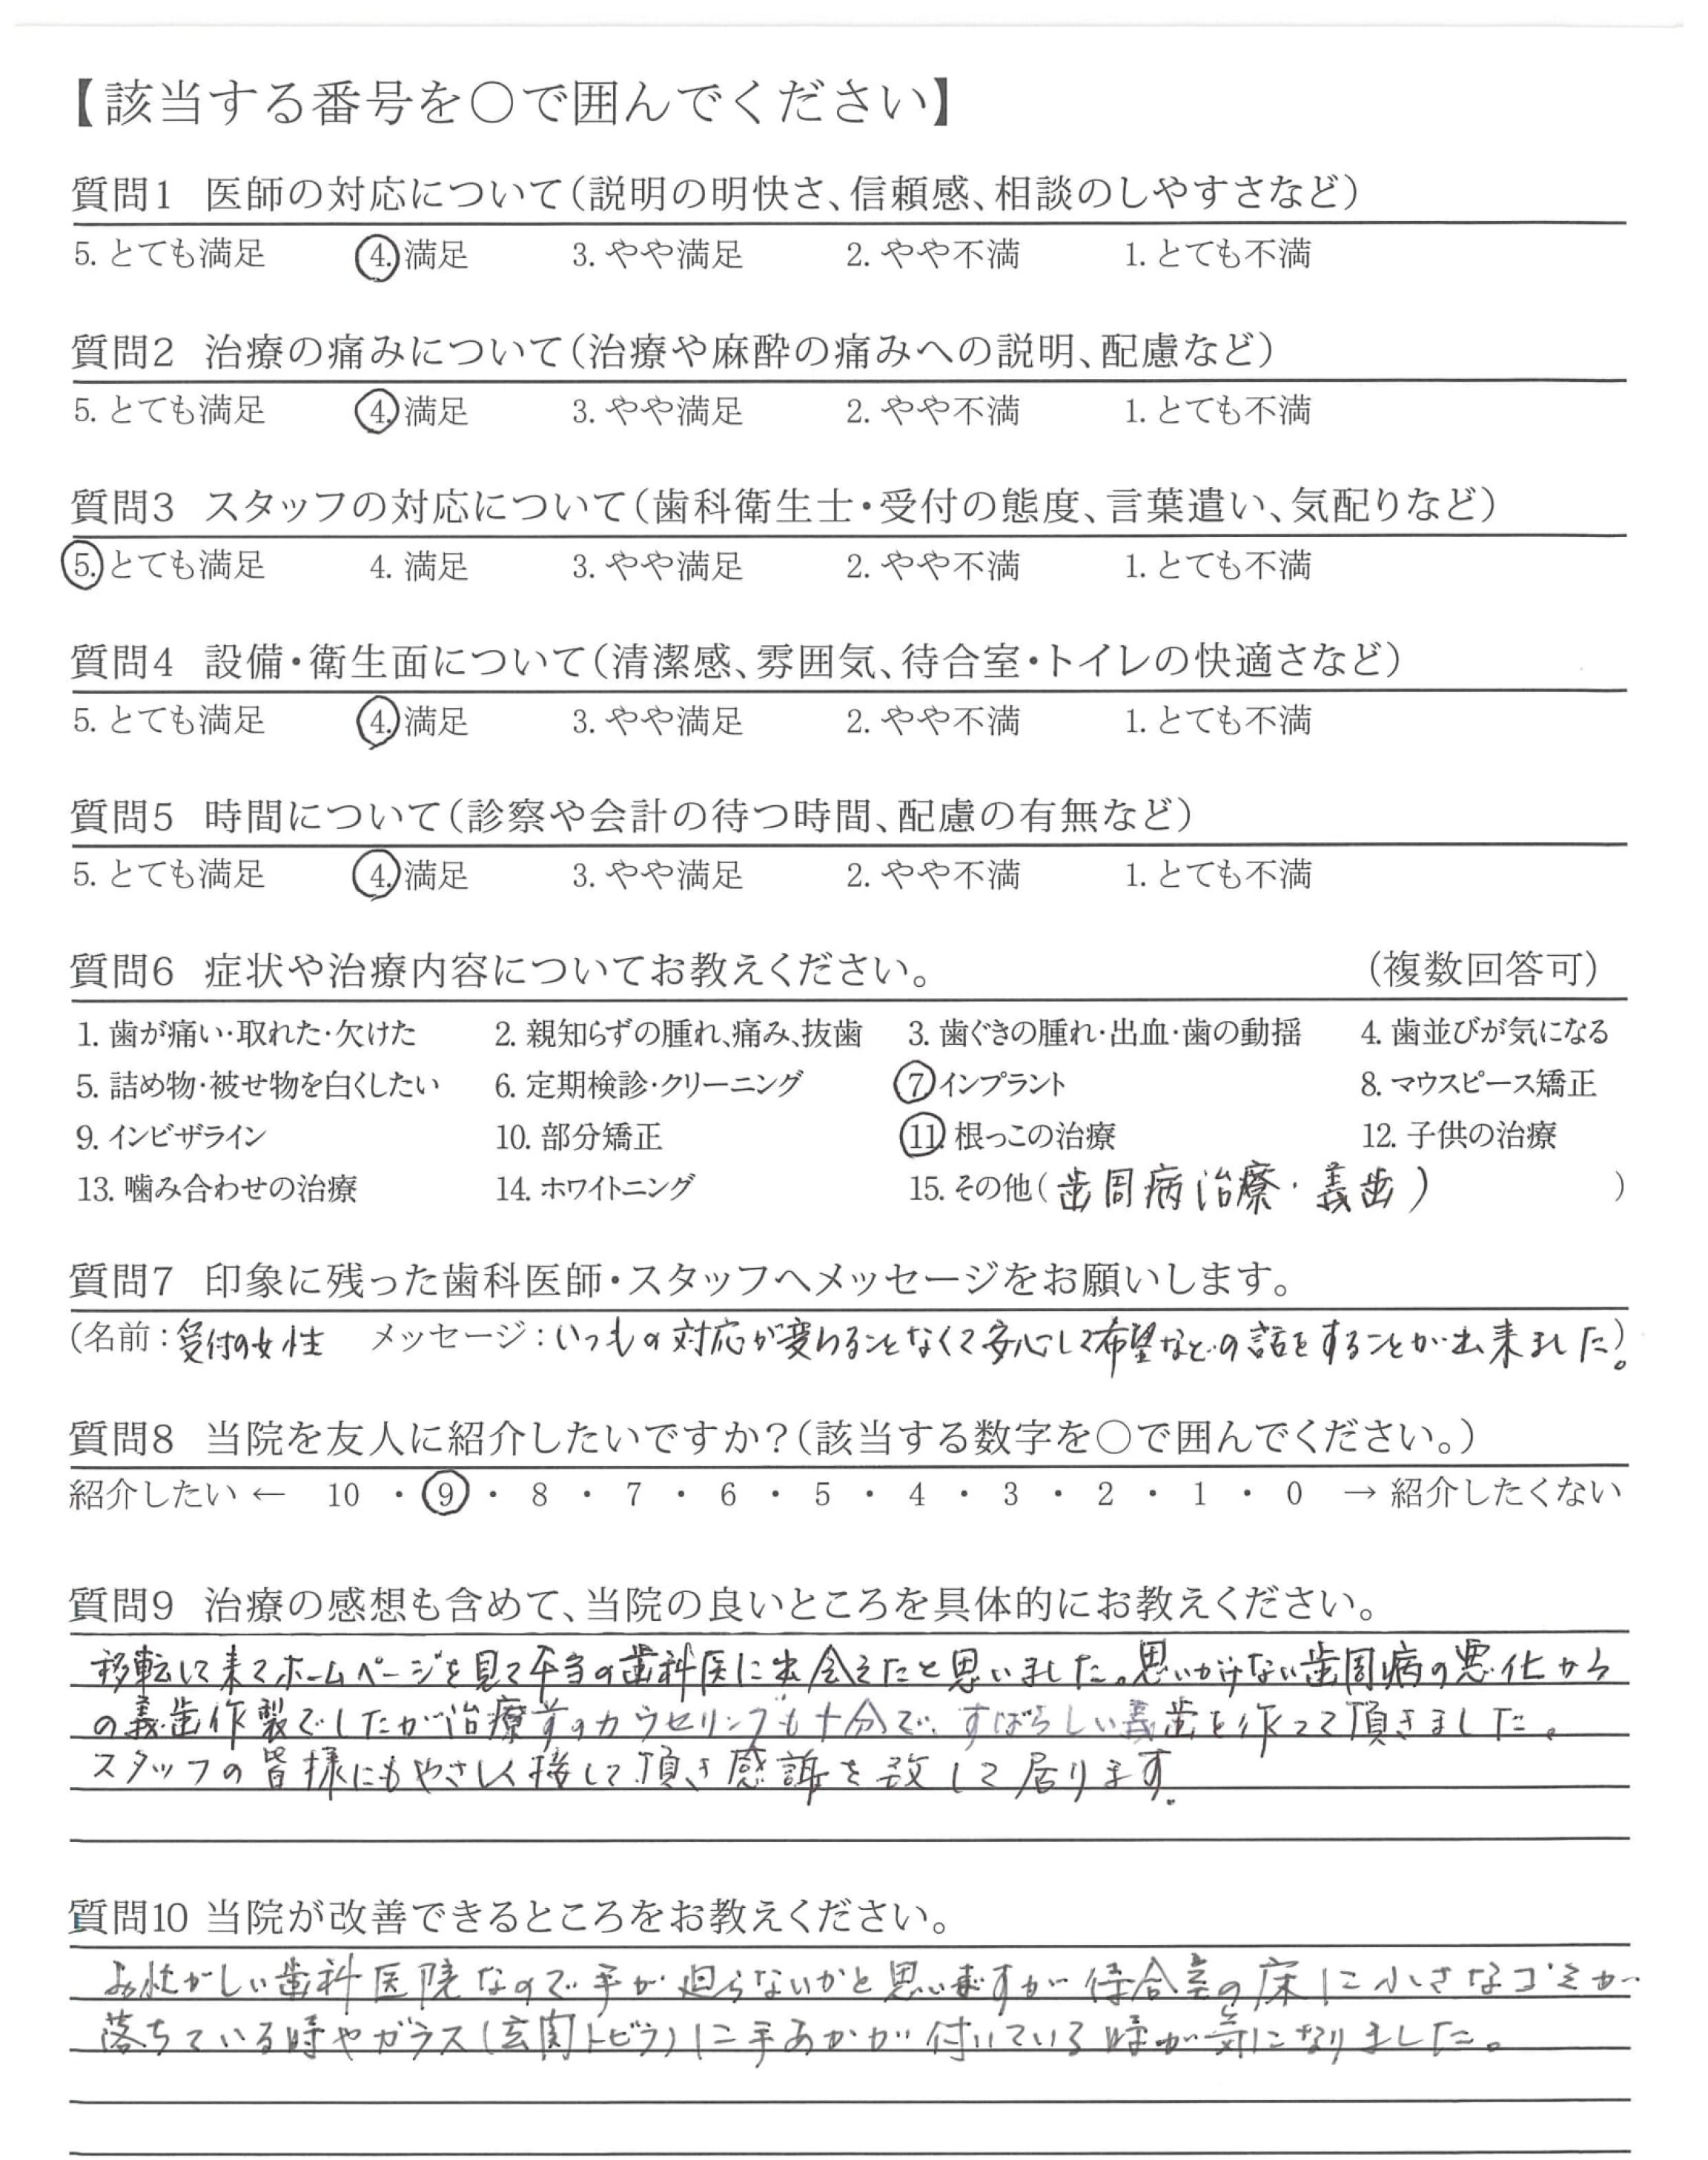 【該当する番号を〇で囲んでください】
質問1 医師の対応について(説明の明快さ、信頼感、相談のしやすさなど)
5. とても満足 4. 満足 3. やや満足 2. やや不満 1. とても不満
質問2 治療の痛みについて(治療や麻酔の痛みへの説明、配慮など)
5. とても満足 4. 満足 3. やや満足 2. やや不満 1. とても不満
質問3 スタッフの対応について(歯科衛生士・受付の態度、言葉遣い、気配りなど)
5. とても満足 4. 満足 3. やや満足 2. やや不満 1. とても不満
質問4 設備・衛生面について(清潔感、雰囲気、待合室・トイレの快適さなど)
5. とても満足 4. 満足 3. やや満足 2. やや不満 1. とても不満
質問5 時間について(診察や会計の待つ時間、配慮の有無など)
5. とても満足 4. 満足 3. やや満足 2. やや不満 1. とても不満
質問6 症状や治療内容についてお教えください。 (複数回答可)
1. 歯が痛い・取れた・欠けた 2. 親知らずの腫れ、痛み、抜歯 3. 歯ぐきの腫れ・出血・歯の動揺 4. 歯並びが気になる
5. 詰め物・被せ物を白くしたい 6. 定期検診・クリーニング 7 インプラント 8. マウスピース矯正
9. インビザライン 10. 部分矯正 11. 根っこの治療 12. 子供の治療
13. 噛み合わせの治療 14. ホワイトニング 15. その他(歯周病治療・義歯) )
質問7 印象に残った歯科医師・スタッフへメッセージをお願いします。
(名前:受付の女性 メッセージ:いつもの対応が変わることなくて安心して希望などの話をすることが出来ました。)
質問8 当院を友人に紹介したいですか?(該当する数字を〇で囲んでください。)
紹介したい ← 10 ・ 9 ・ 8 ・ 7 ・ 6 ・ 5 ・ 4 ・ 3 ・ 2 ・ 1 ・ 0 → 紹介したくない
質問9 治療の感想も含めて、当院の良いところを具体的にお教えください。
移転して来てホームページを見て本当の歯科医に出会えたと思いました。思いかけない歯周病の悪化から
の義歯作製でしたが治療前のカウセリングも十分で、すばらしい義歯を作って頂きました。
スタッフの皆様にもやさしく接して頂き感謝を致して居ります。
質問10 当院が改善できるところをお教えください。
お忙がしい歯科医院なので手が廻らないかと思いますが待合室の床に小さなゴミが
落ちている時やガラス(玄関トビラ)に手あかが付いている時が気になりました。